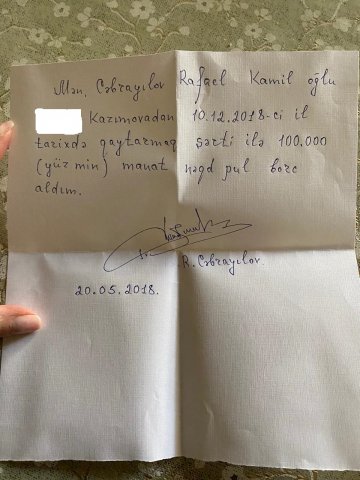 Mən, Cəbrayılov Rafael Kamil oğlu
Kazımovadan 10.12.2018-ci il
tarixdə qaytarmaq şərti ilə 100.000
(yüz min) manat nəğd pul borc
aldım.
R. Cəbrayılov.
20.05.2018.